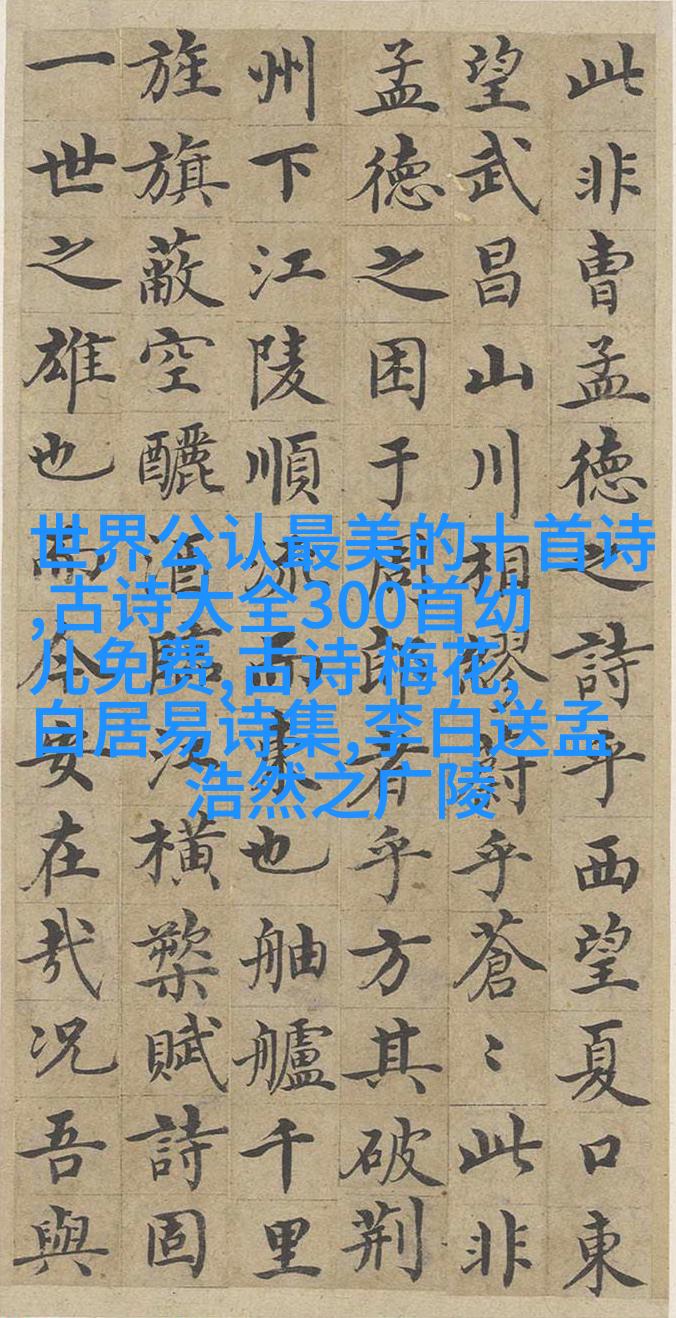 此非曹孟德之詩乎西望夏口東
望武昌山川相繆蔚乎蒼〻此非
孟德之困于周郎者乎方其破荆
州下江陵順流而東也舳艫千里
旌旗蔽空釃酒臨江橫槊賦詩固
一世之雄也而今安在哉況吾與
世界公认最美的十首诗
,古诗大全300首幼
儿免费,古诗 梅花,
白居易诗集,李白送孟
浩然之广陵